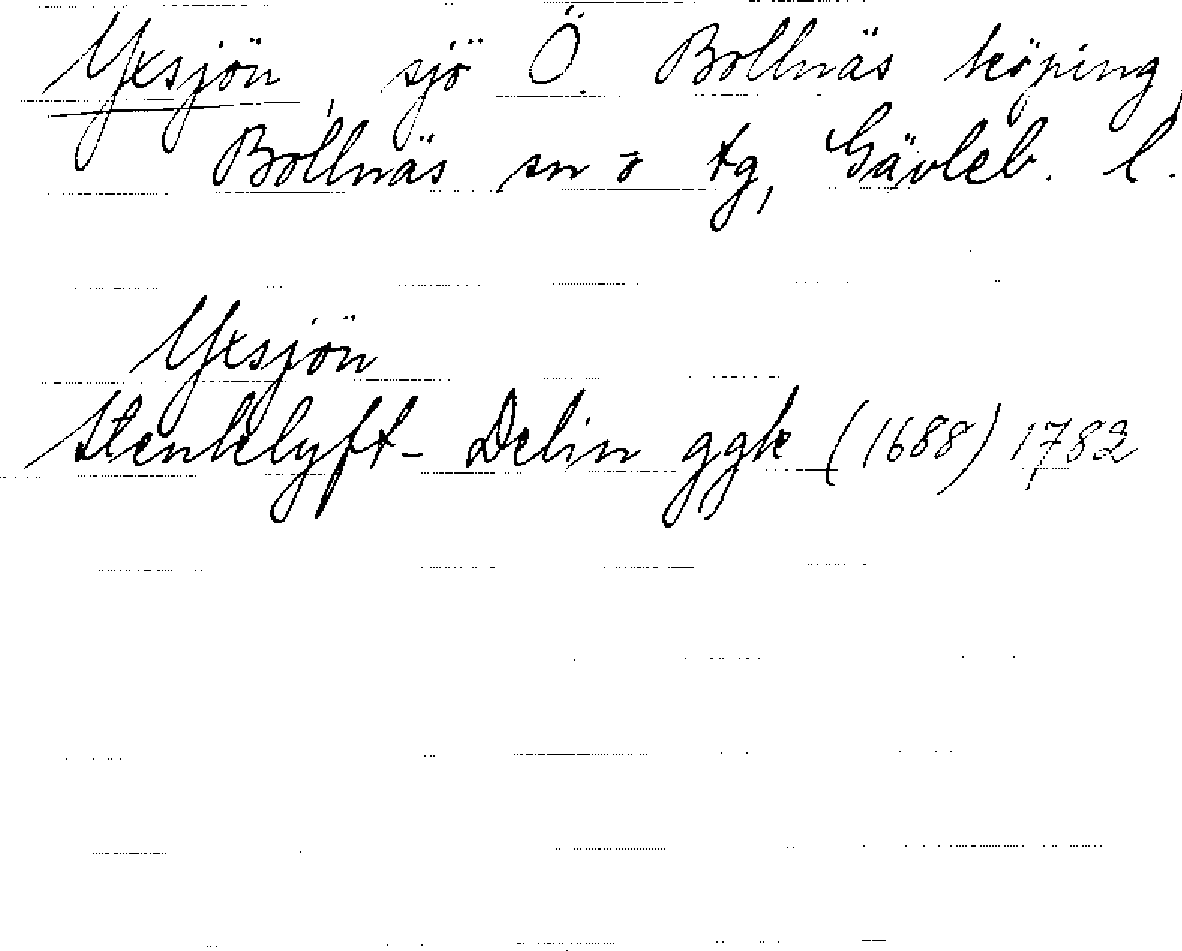 Yxsjön, sjö Ö. Bollnäs köping,
Bollnäs sn o tg, Gävleb. l.
Yxsjön
Stenklyft- Delin ggk (1688) 1782